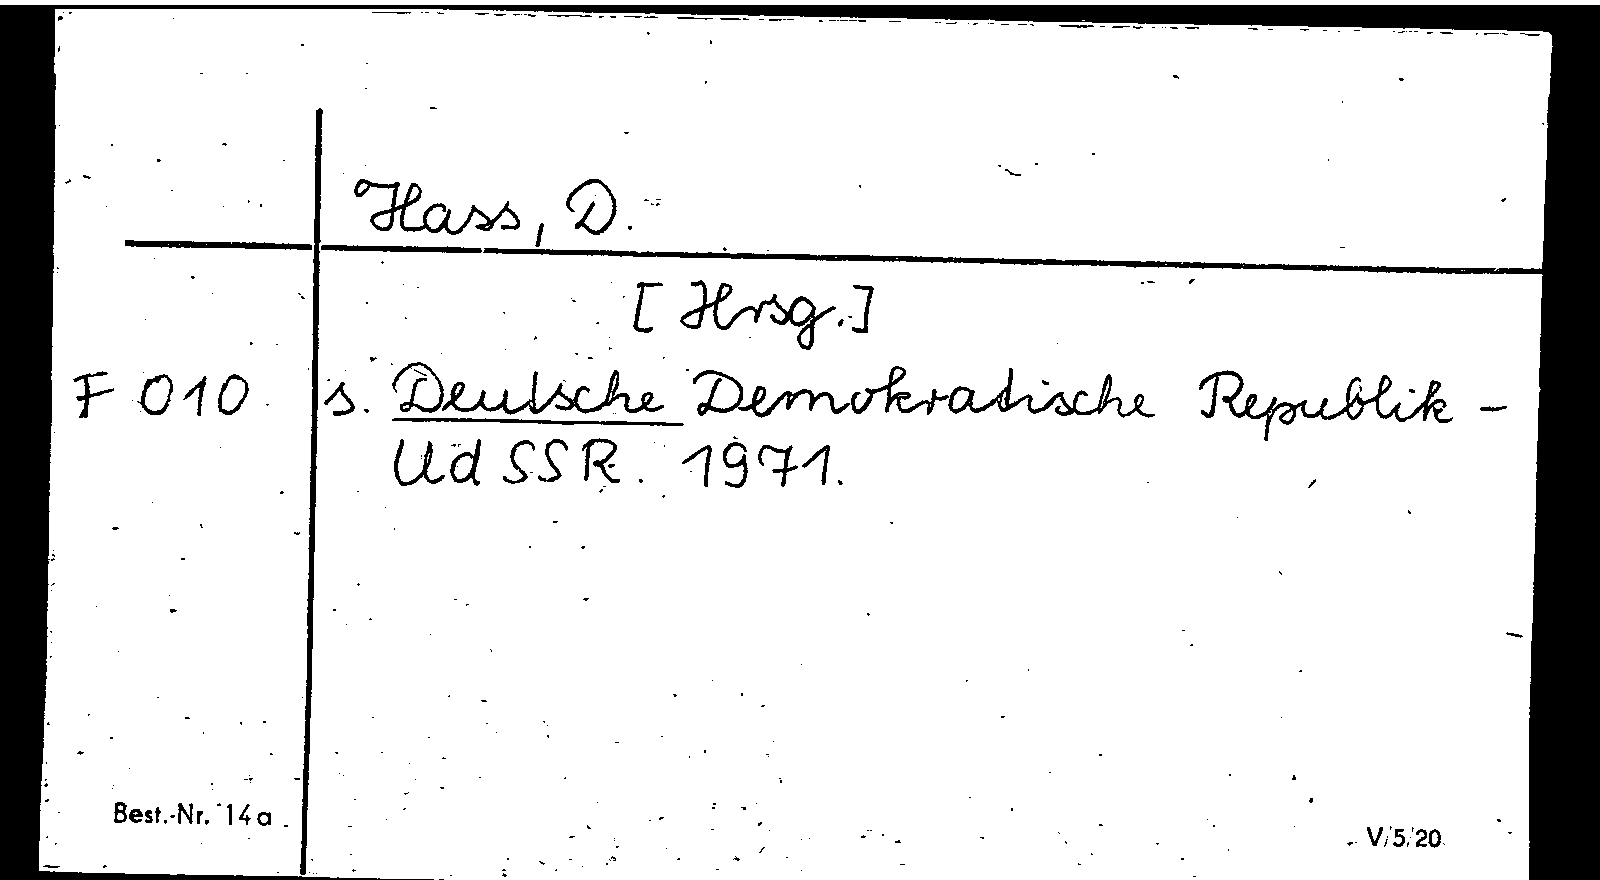 Hass, D.
[Hrsg.]
F 010 s. Deutsche Demokratische Republik -
UdSSR. 1971.
Best.-Nr. 14a
V/5/20